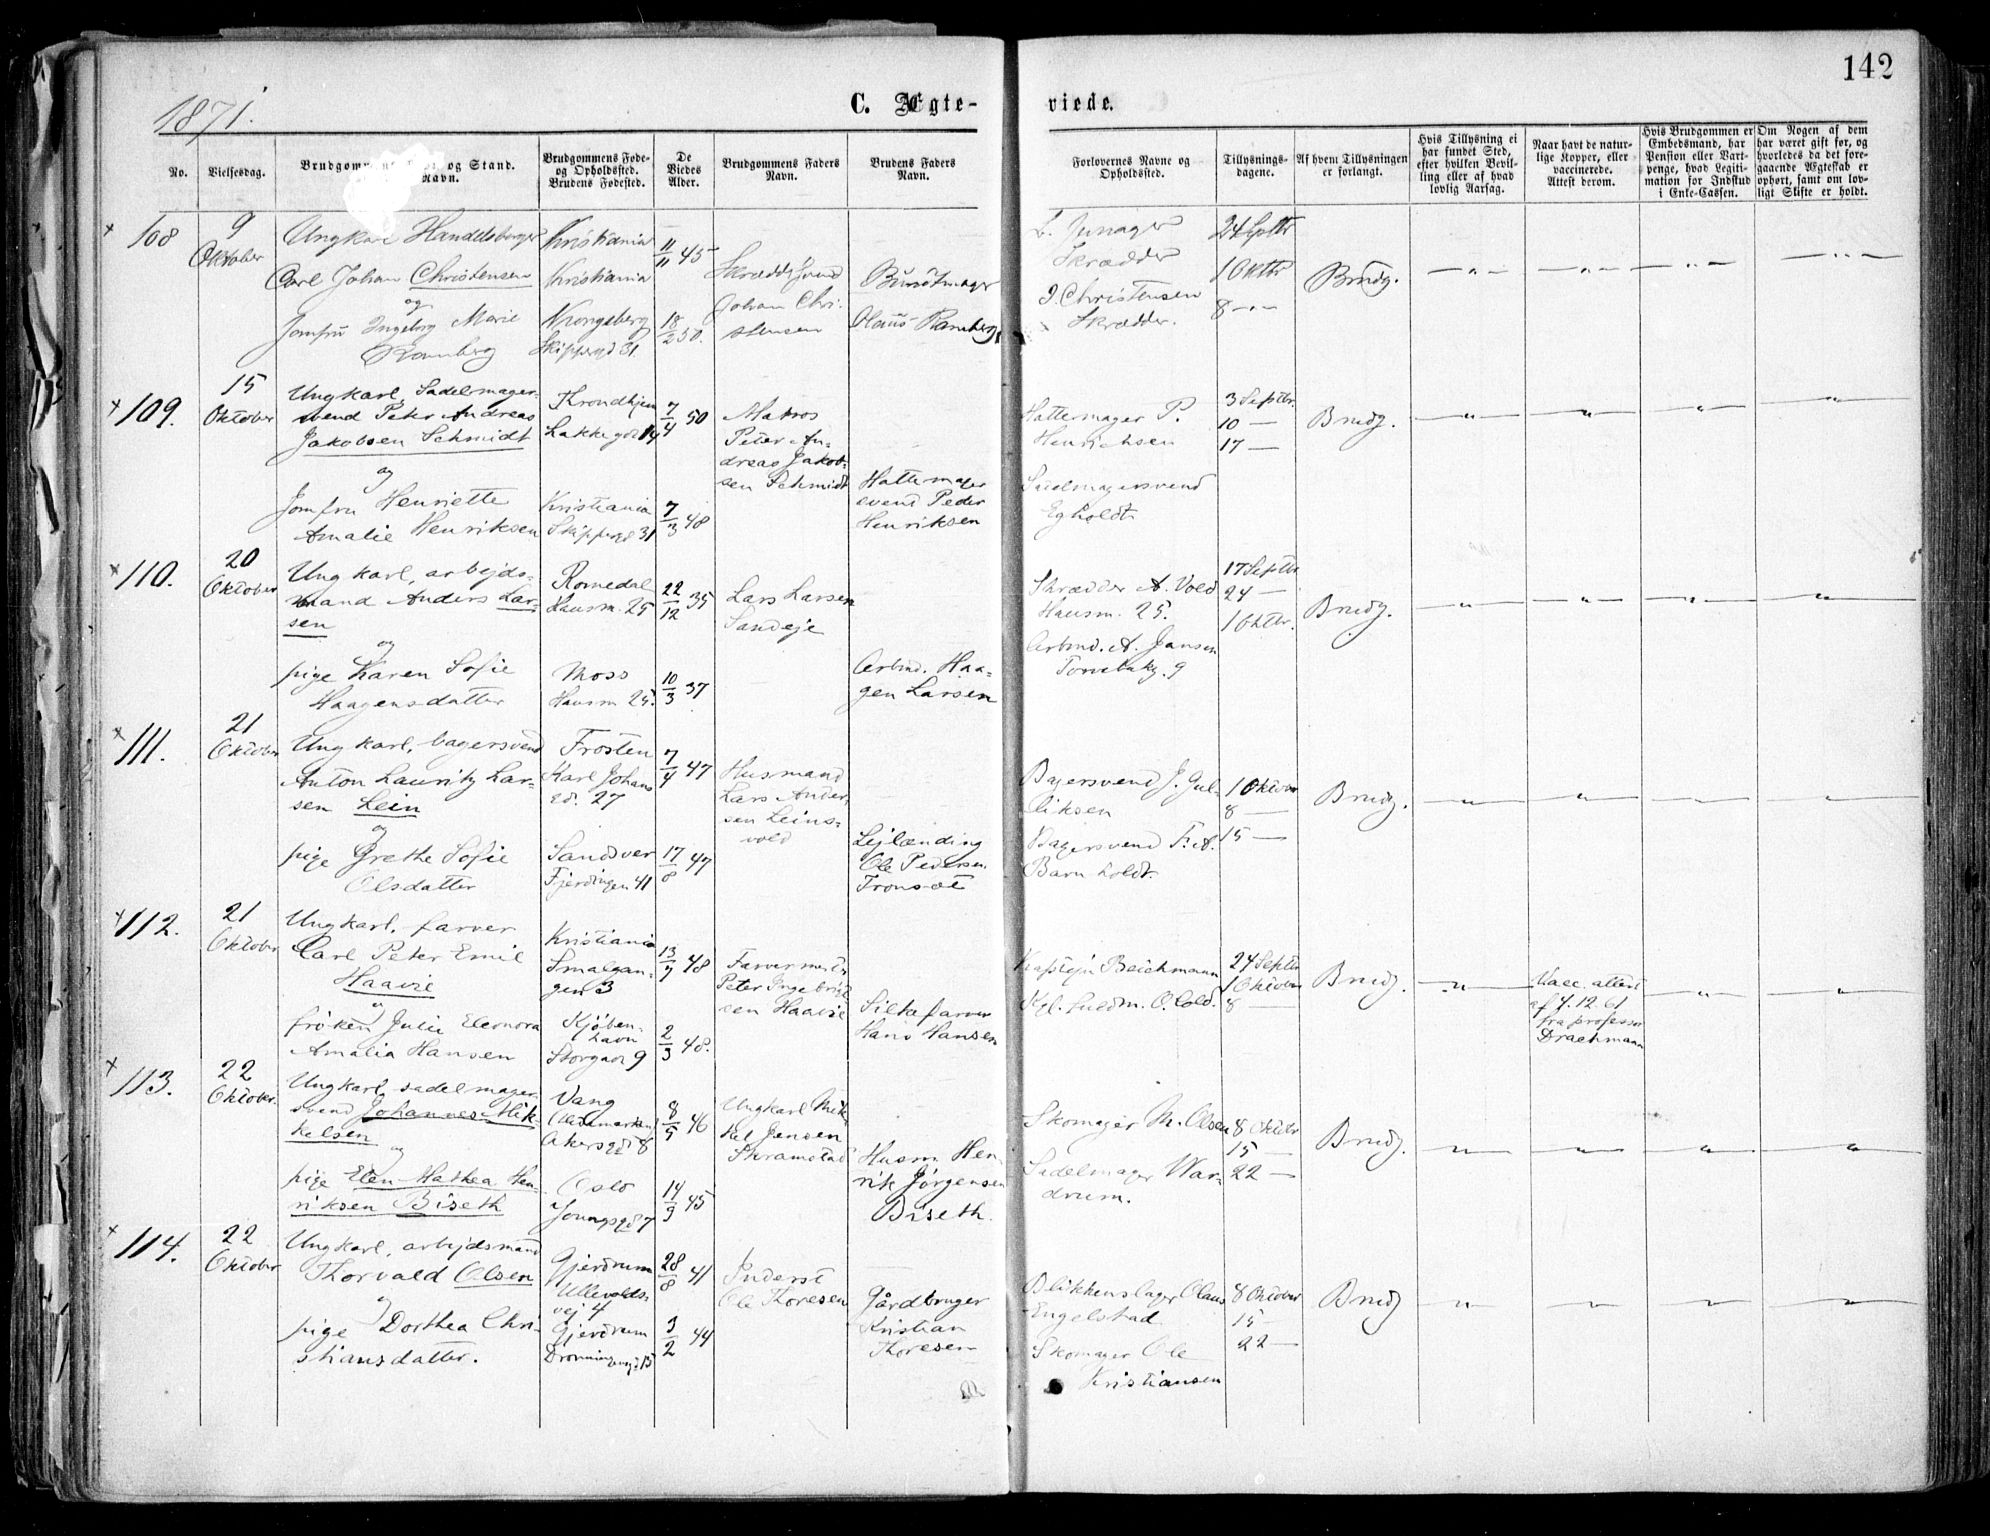 142
1871.
C. Ægte-
viede.
No.
Vielsesdag.
og Stand.
Navn.
Brudgommens Føde-
og Opholdssted.
Brudens Fødested.
De
Viedes
Alder.
Brudgommens Faders
Navn.
Brudens Faders
Navn.
Forlovernes Navne og
Opholdssted.
Tillysnings-
dagene.
Af hvem Tillysningen
er forlangt.
Hvis Tillysning ei
har fundet Sted,
efter hvilken Bevil-
ling eller af hvad
lovlig Aarsag.
Naar havt de natur-
lige Kopper, eller
vaccinerede.
Attest derom.
Hvis Brudgommen er
Embedsmand, har
Pension eller Vart-
penge, hvad Legiti-
mation for Indskud
i Enke-Cassen.
Om Nogen af dem
har været gift før, og
hvorledes da det fore-
gaaende Ægteskab er
ophørt, samt om lov-
ligt Skifte er holdt.
108
9
Oktober
Ungkarl Handelsborger
Carl Johan Christensen
og
Jomfru Ingeborg Marie
Ramberg
Kristiania
Kristiania
Kongsberg
Skippergd 31
11/11 45
18/2 50.
Skrædder Svend
Johan Chri-
stensen
Bundtmager
Olaus Ramberg
Skrædder
J. Christensen
Skrædder.
24 Septbr
1 Oktbr
8 -"-
Brudg.
109.
15
Oktober
Ungkarl, Sadelmager-
svend Peter Andreas
Jakobsen Schmidt
og
Jomfru Henriette
Amalie Henriksen
Trondhjem
Lakkegd 14
Kristiania
Skippergd 31
7/4 50
7/3 48
Matros
Peter An-
dreas Jakob-
sen Schmidt
Hattemager
svend Peder
Henriksen
Hattemager P.
Henrichsen
Sadelmagersvend
Egholdt
3 Septbr.
10 —
17 —
Brudg.
110.
20
Oktober
Ungkarl, arbejds-
mand Anders Lar-
sen
og
pige Karen Sofie
Haagensdatter
Romedal
Hausm. 25
Moss
Hausm 25.
22/12 35
10/3 37
Lars Larsen
Sandeje
Arbmd. Haa-
gen Larsen
Skrædder A. Vold
Hausm. 25.
Arbmd. A. Jansen
Torvebakg. 9
17 Septbr
24 —
1 Oktbr.
Brudg.
111.
21
Oktober
Ungkarl, bagersvend
Anton Lauritz Lar-
sen Lein
og
pige Grethe Sofie
Olsdatter
Frosten
Karl Johans
gd. 27
Sandsver
Fjerdingen 41
7/4 47
17/8 47
Husmand
Lars Ander-
sen Leins-
vold
Lejlænding
Ole Pedersen
Tronsæt
Bagersvend J. Gul-
liksen
Bagersvend F. A.
Barnholdt.
1 Oktober
8 —
15 —
Brudg.
112.
21
Oktober
Ungkarl, farver
Carl Peter Emil
Haavie
og
frøken Julie Eleonora
Amalia Hansen
Kristiania
Smalgan-
gen 3
Kjøben-
havn
Storgad 9
13/7 48
2/3 48.
Farvermester
Peter Ingebrigt-
sen Haavie
Silkefarver
Hans Hansen
Kaptejn Beichmann
Kgl. fuldm. O. Cold.
24 Septbr
1 Oktober
8 —
Brudg.
Vacc. attest
af 7.12.61
fra professor
Drachmann
113.
22
Oktober.
Ungkarl, sadelmager-
svend Johannes Mik-
kelsen
og
pige Elen Mathea Hen-
riksen Biseth
Vang
(Hedemarken)
Akersgd 8
Oslo
Youngsgd 7
8/5 46
14/9 45
Ungkarl Mik-
kel Jensen
Skramstad
Husm Hen-
rik Jørgensen
Biseth.
Skomager M. Olsen
Sadelmager War-
drum.
8 Oktbr
15 —
22 —
Brudg.
114.
22
Oktober
Ungkarl, arbejdsmand
Thorvald Olsen
og
pige Dorthea Chri-
stiansdatter.
Gjerdrum
Ullevolds-
vej 4
Gjerdrum
Dronningensgd 15
28/8 41
3/2 44
Inderst
Ole Thoresen
Gårdbruger
Kristian
Thoresen
Blikkenslager Olaus
Engelstad
Skomager Ole
Kristiansen
8 Oktober
15 —
22 —
Brudg